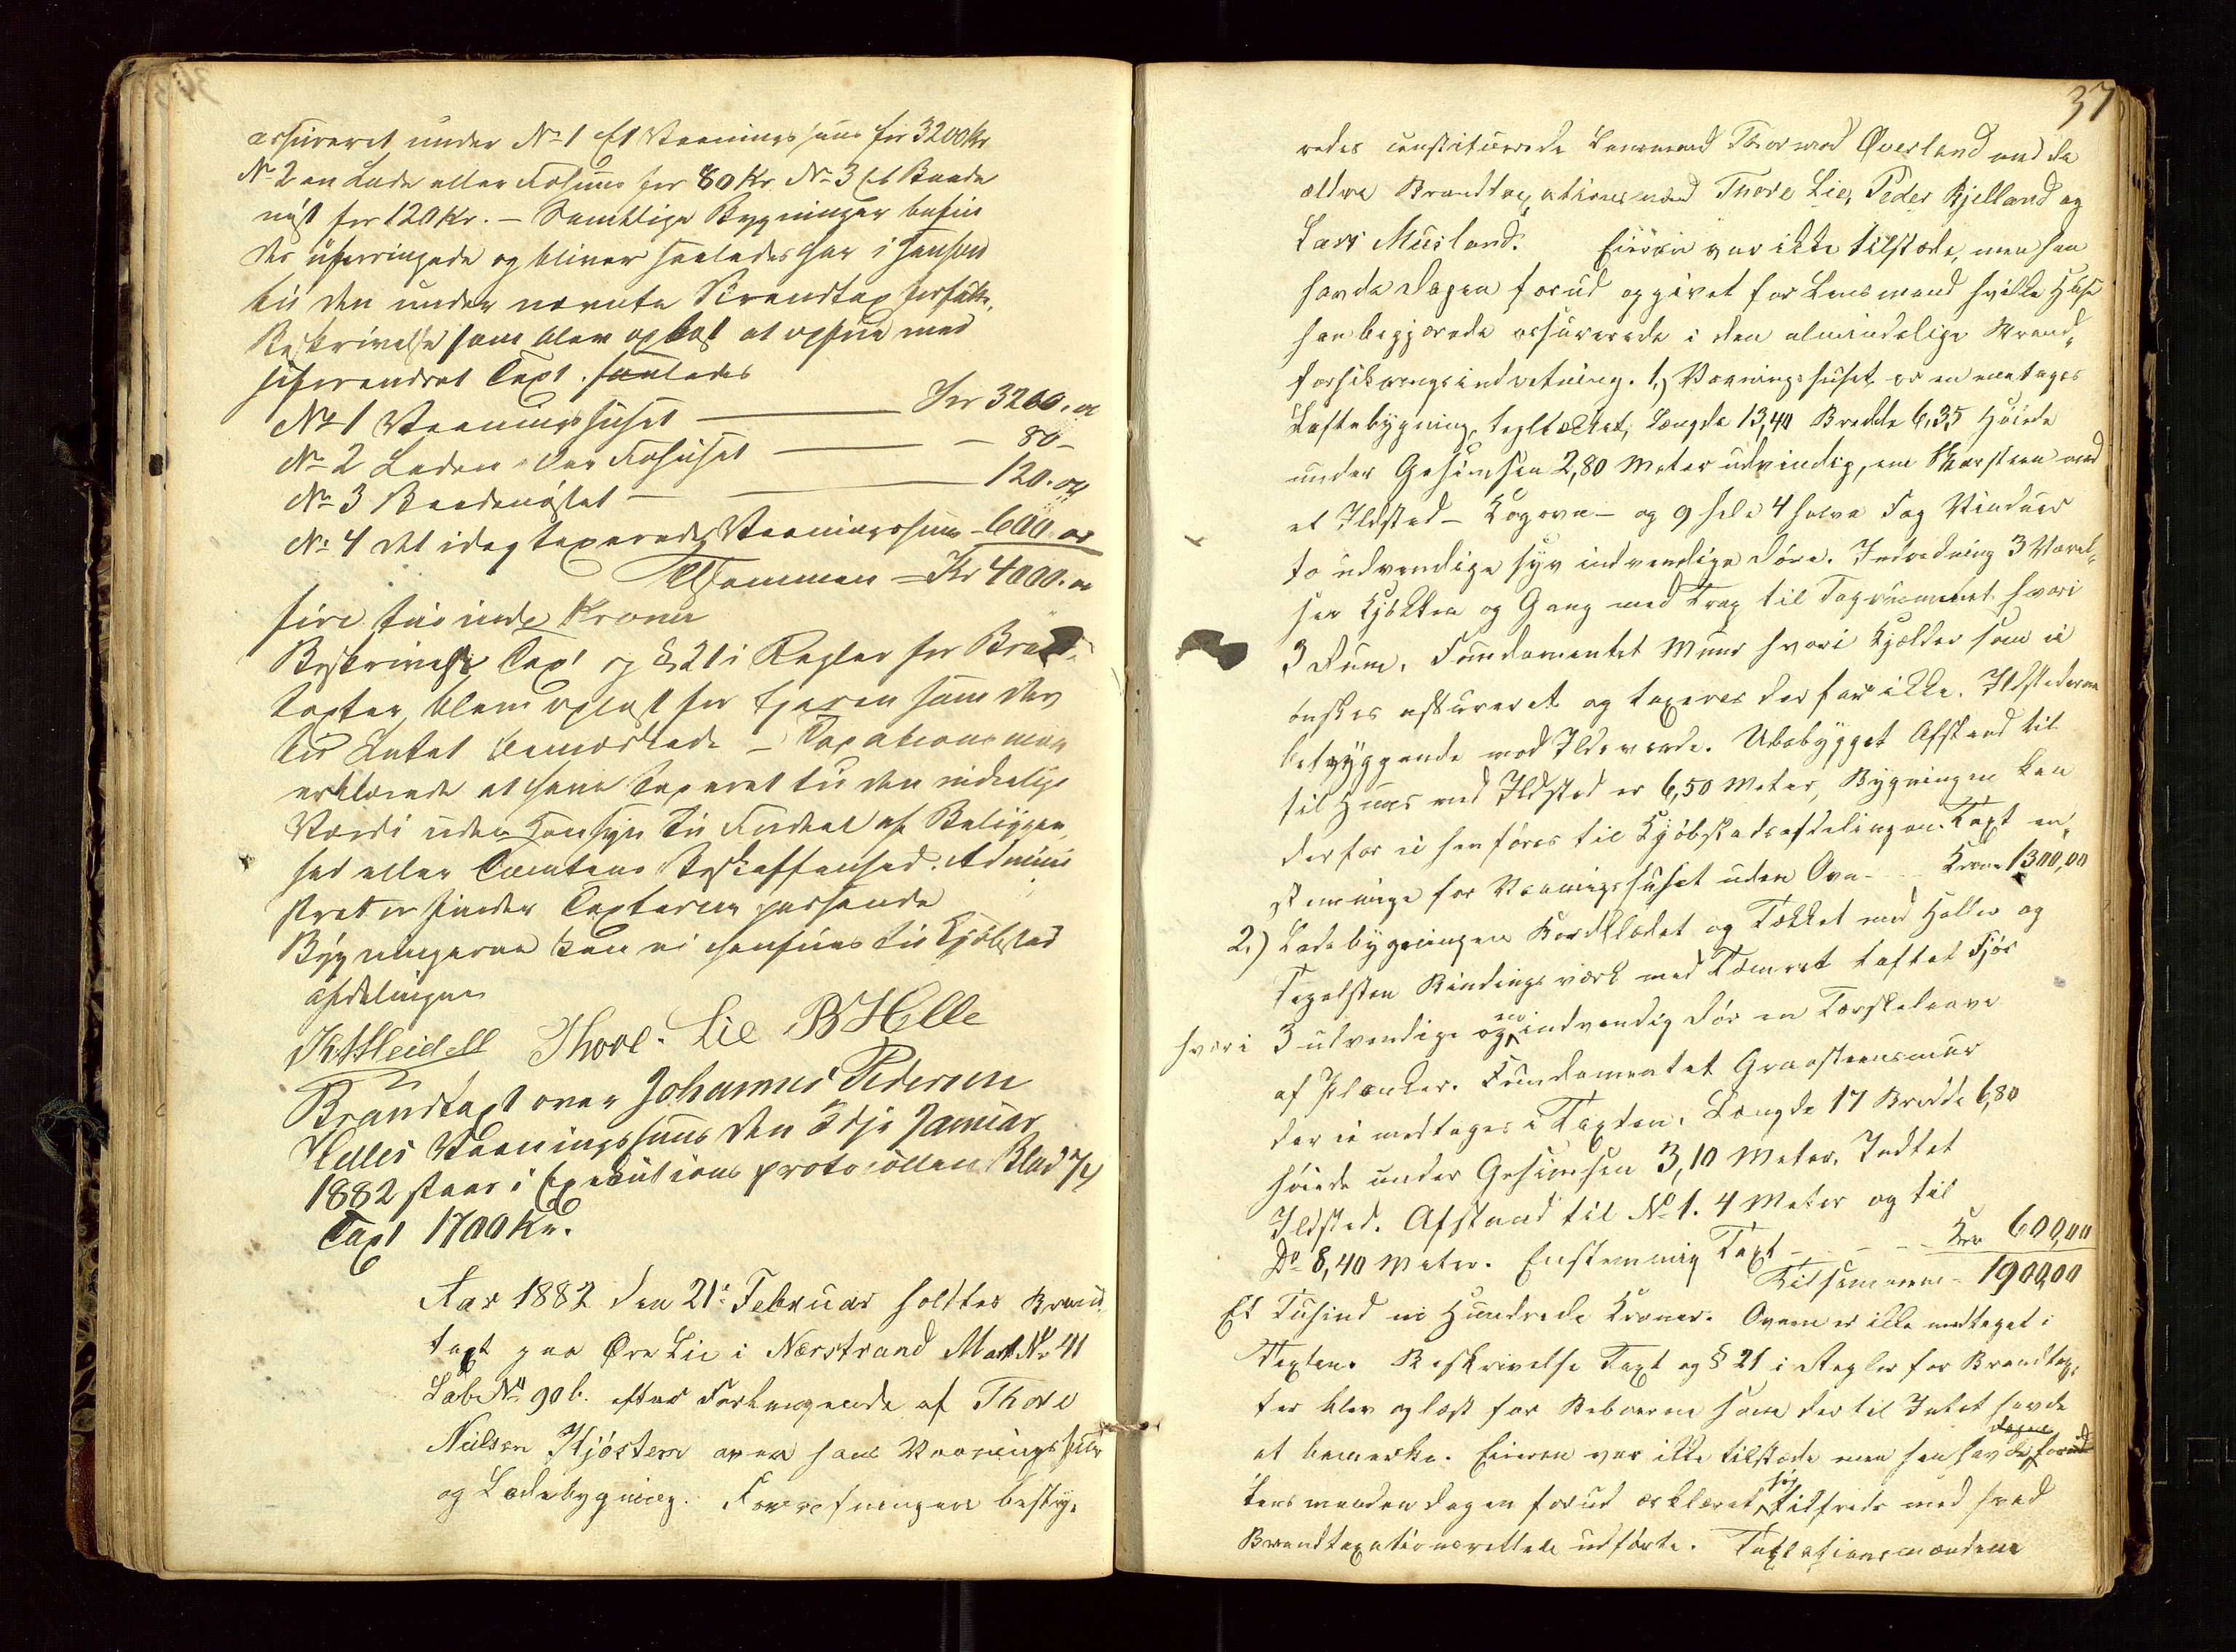 assureret under No 1 et Vaaningshuus for 3200 Kr
No 2 en Lade eller Fæhuus for 80 Kr. No 3 et Baade
nøst for 120 Kr. – Samtlige Bygninger befin
des uforringede og bliver saaledes her i Henhold
til den under nævnte Brandtax forfatt.
Beskrivelse som blev oplæst at opføre med
uforandret Taxt. saaledes
No 1 Vaaningshuset — Kr 3200.00
No 2 Laden eller Fæhuset — – 80 –
No 3 Baadenøstet — 120.00
No 4 det idag taxerede Vaaningshuus – 600.00
Tilsammen = Kr 4000.00
fire tusinde Kroner
Beskrivelse Taxt og § 21 i Regler for Brand
taxter, blev oplæst for Ejeren som der
til Intet bemærkede – Taxationsmænd
erklærede at have taxeret til den virkelige
Værdi uden Hensyn til Fordeel af Beliggen
hed eller Tomtens Beskaffenhed. Admini
strator finder Taxterne passende
Bygningerne kan ei henføres til Kjøbstad
afdelingen
Thore. Lie B Helle
Brandtaxt over Johannes Pedersen
Helles Vaaningshuus den 3die Januar
1882 staar i Executionsprotocollen Blad 74
Taxt 1700 Kr.
Aar 1882 den 21de Februar holdtes Brand
taxt paa Øvre Lie i Nærstrand Matr No 41
Løb No 90 b. efter Forlangende af Thore
Nielsen Hjøsten over hans Vaaningshuus
og Ladebygning. Forretningen besty,
37
redes constituerede Lensmand Thormod Øverland med de
ældre Brandtaxationsmænd Thore Lie, Peder Kjelland og
Lars Musland. Eieren var ikke tilstæde, men han
havde Dagen forud opgivet for Lensmand hvilke Huse
han begjærede assurerede i den almindelige Brand,,
forsikringsindretning. 1) Vaaningshuset er en eenetages
Loftebygning, tegltækket, Længde 13,40 Bredde 6,35 Høide
under Gesimsen 2,80 Meter udvendig, en Skorsteen med
et Ildsted – Kogovn – og 9 hele 4 halve Fag Vinduer
to udvendige syv indvendige Døre. Indredning 3 Værel,,
ser Kjøkken og Gang med Trap til Tagrummet hvori
3 Rum. Fundamentet Muur hvori Kjælder som ei
ønskes assureret og taxeres derfor ikke. Ildstederne
betryggende mod Ildsvaade. Ubebygget Afstand til
til Huus med Ildsted er 6,50 Meter, Bygningen kan
derfor ei henføres til Kjøbstadsafdelingen. Taxt en,,
stemmige for Vaaningshuset uden Ovn – – Kroner 1300,00
2.) Ladebygningen Bordklædet og Tækket med Heller og
Tegelsten Bindingsværk med Tømret loftet Fjøs
hvori 3 udvendige og en indvendig Dør en Tærskelaave
af Planker. Fundamentet Graasteensmur
der ei medtages i Taxten. Længde 17 Bredde 6,80
Høide under Gesimsen 3,10 Meter. Intet
Ildsted. Afstand til No 1. 4 Meter og til
Do 8,40 Meter. Enstemmig Taxt – – – – Kr 600,00
Tilsammen – 1900,00
Et Tusind ni Hundrede Kroner. Ovnen er ikke medtaget i
Taxten. Beskrivelse Taxt og § 21 i Regler for Brandtax,
ter blev oplæst for Beboerne som der til Intet havde
at bemærke. Eieren var ikke tilstæde men han havde for
Lensmanden dagen forud erklæret sig tilfreds med hvad
Brandtaxationsretten udførte. Taxtationsmændene